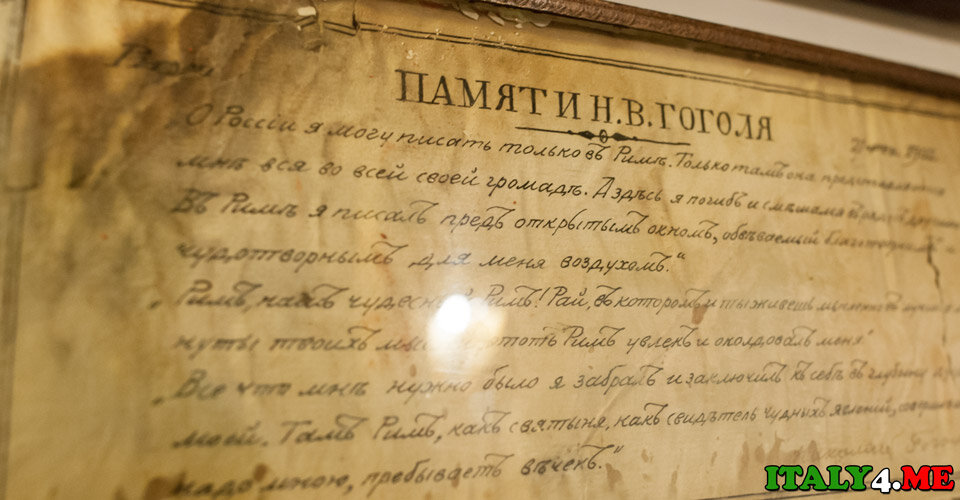 ПАМЯТИ Н.В.ГОГОЛЯ
„О Россіи я могу писать только въ Римѣ. Только тамъ она предстоитъ
мнѣ вся во всей своей громадѣ. А здѣсь я погибъ и смѣшался въ
Въ Римѣ я писалъ предъ открытымъ окномъ, обвѣваемый благотворнымъ и
чудотворнымъ для меня воздухомъ.“
„Римъ, нашъ чудесный Римъ! Рай, въ которомъ и ты живешь мысленно въ
нуты твоихъ этотъ Римъ увлекъ и околдовалъ меня
„Все что мнѣ нужно было я забралъ и заключилъ къ себѣ въ глубину
моей. Тамъ Римъ, какъ святыня, какъ свидѣтель чудныхъ явленій,
мною, пребываетъ вѣченъ.“
ITALY4.ME